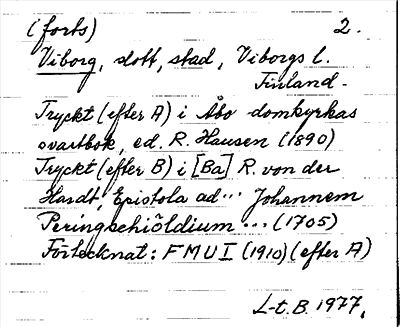 (forts) 2.
Viborg, dott, stad, Viborgs l.
Finland.
Tryckt (efter A) i Åbo domkyrkas
svartbok, ed. R. Hausen (1890)
Tryckt (efter B) i [Ba] R. von der
Hardt, Epistola ad... Johannem
Peringschiöldium ... (1705)
Förtecknat: FMU I (1910) (efter A)
L-t. B. 1977.